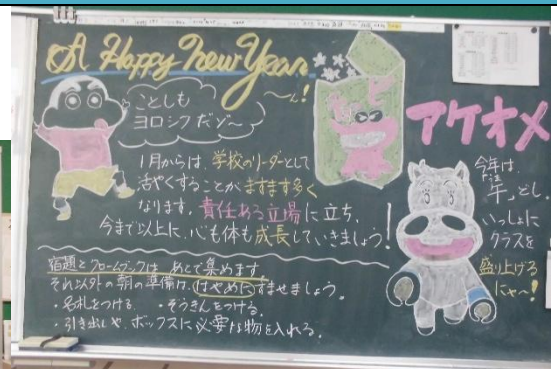 A Happy New Year
〜ん!
ことしも
ヨロシクだゾ〜
アケオメ
1月からは、学校のリーダーとして
活やくすることがますます多く
なります。責任ある立場に立ち、
今まで以上に、心も体も成長していきましょう!
今年は、
午どし。
いっしょに
クラスを
盛り上げる
にゃ〜!
宿題とクロームブックは、あとで集めます。
それ以外の朝の準備は、はやめにすませましょう。
・名札をつける。 ・ぞうきんをつける。
・引き出しや、ボックスに必要な物を入れる。